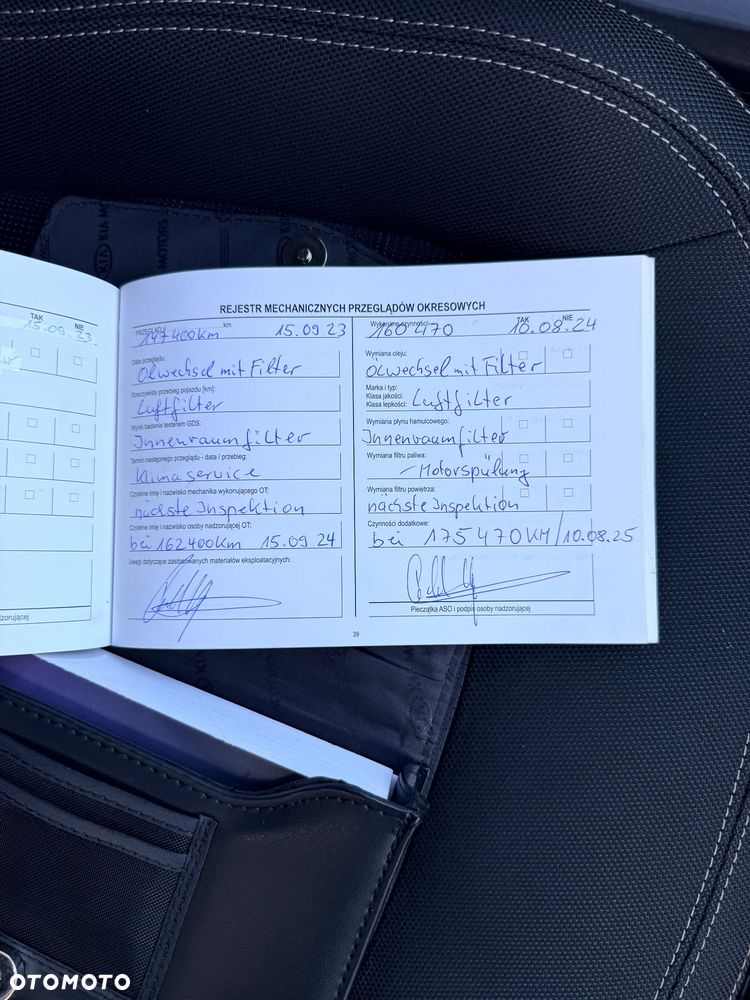 REJESTR MECHANICZNYCH PRZEGLĄDÓW OKRESOWYCH
TAK NIE
15.09.23
nadzorującej
PRZEGLĄD V km
147400km 15.09.23
Data przeglądu:
Ölwechsel mit Filter
Rzeczywisty przebieg pojazdu [km]:
Luftfilter
Wynik badania testerem GDS:
Innenraumfilter
Termin następnego przeglądu - data / przebieg:
Klimaservice
Czytelne imię i nazwisko mechanika wykonującego OT:
nächste Inspektion
Czytelne imię i nazwisko osoby nadzorującej OT:
bei 162400km 15.09.24
Uwagi dotyczące zastosowanych materiałów eksploatacyjnych:
Wykonane czynności: TAK NIE
160470 10.08.24
Wymiana oleju:
Ölwechsel mit Filter
Marka i typ:
Klasa jakości:
Klasa lepkości: Luftfilter
Wymiana płynu hamulcowego:
Innenraumfilter
Wymiana filtru paliwa:
- Motorspülung
Wymiana filtru powietrza:
nächste Inspektion
Czynności dodatkowe:
bei 175470KM/10.08.25
Pieczątka ASO i podpis osoby nadzorującej
39
KIA MOTORS
OTOMOTO